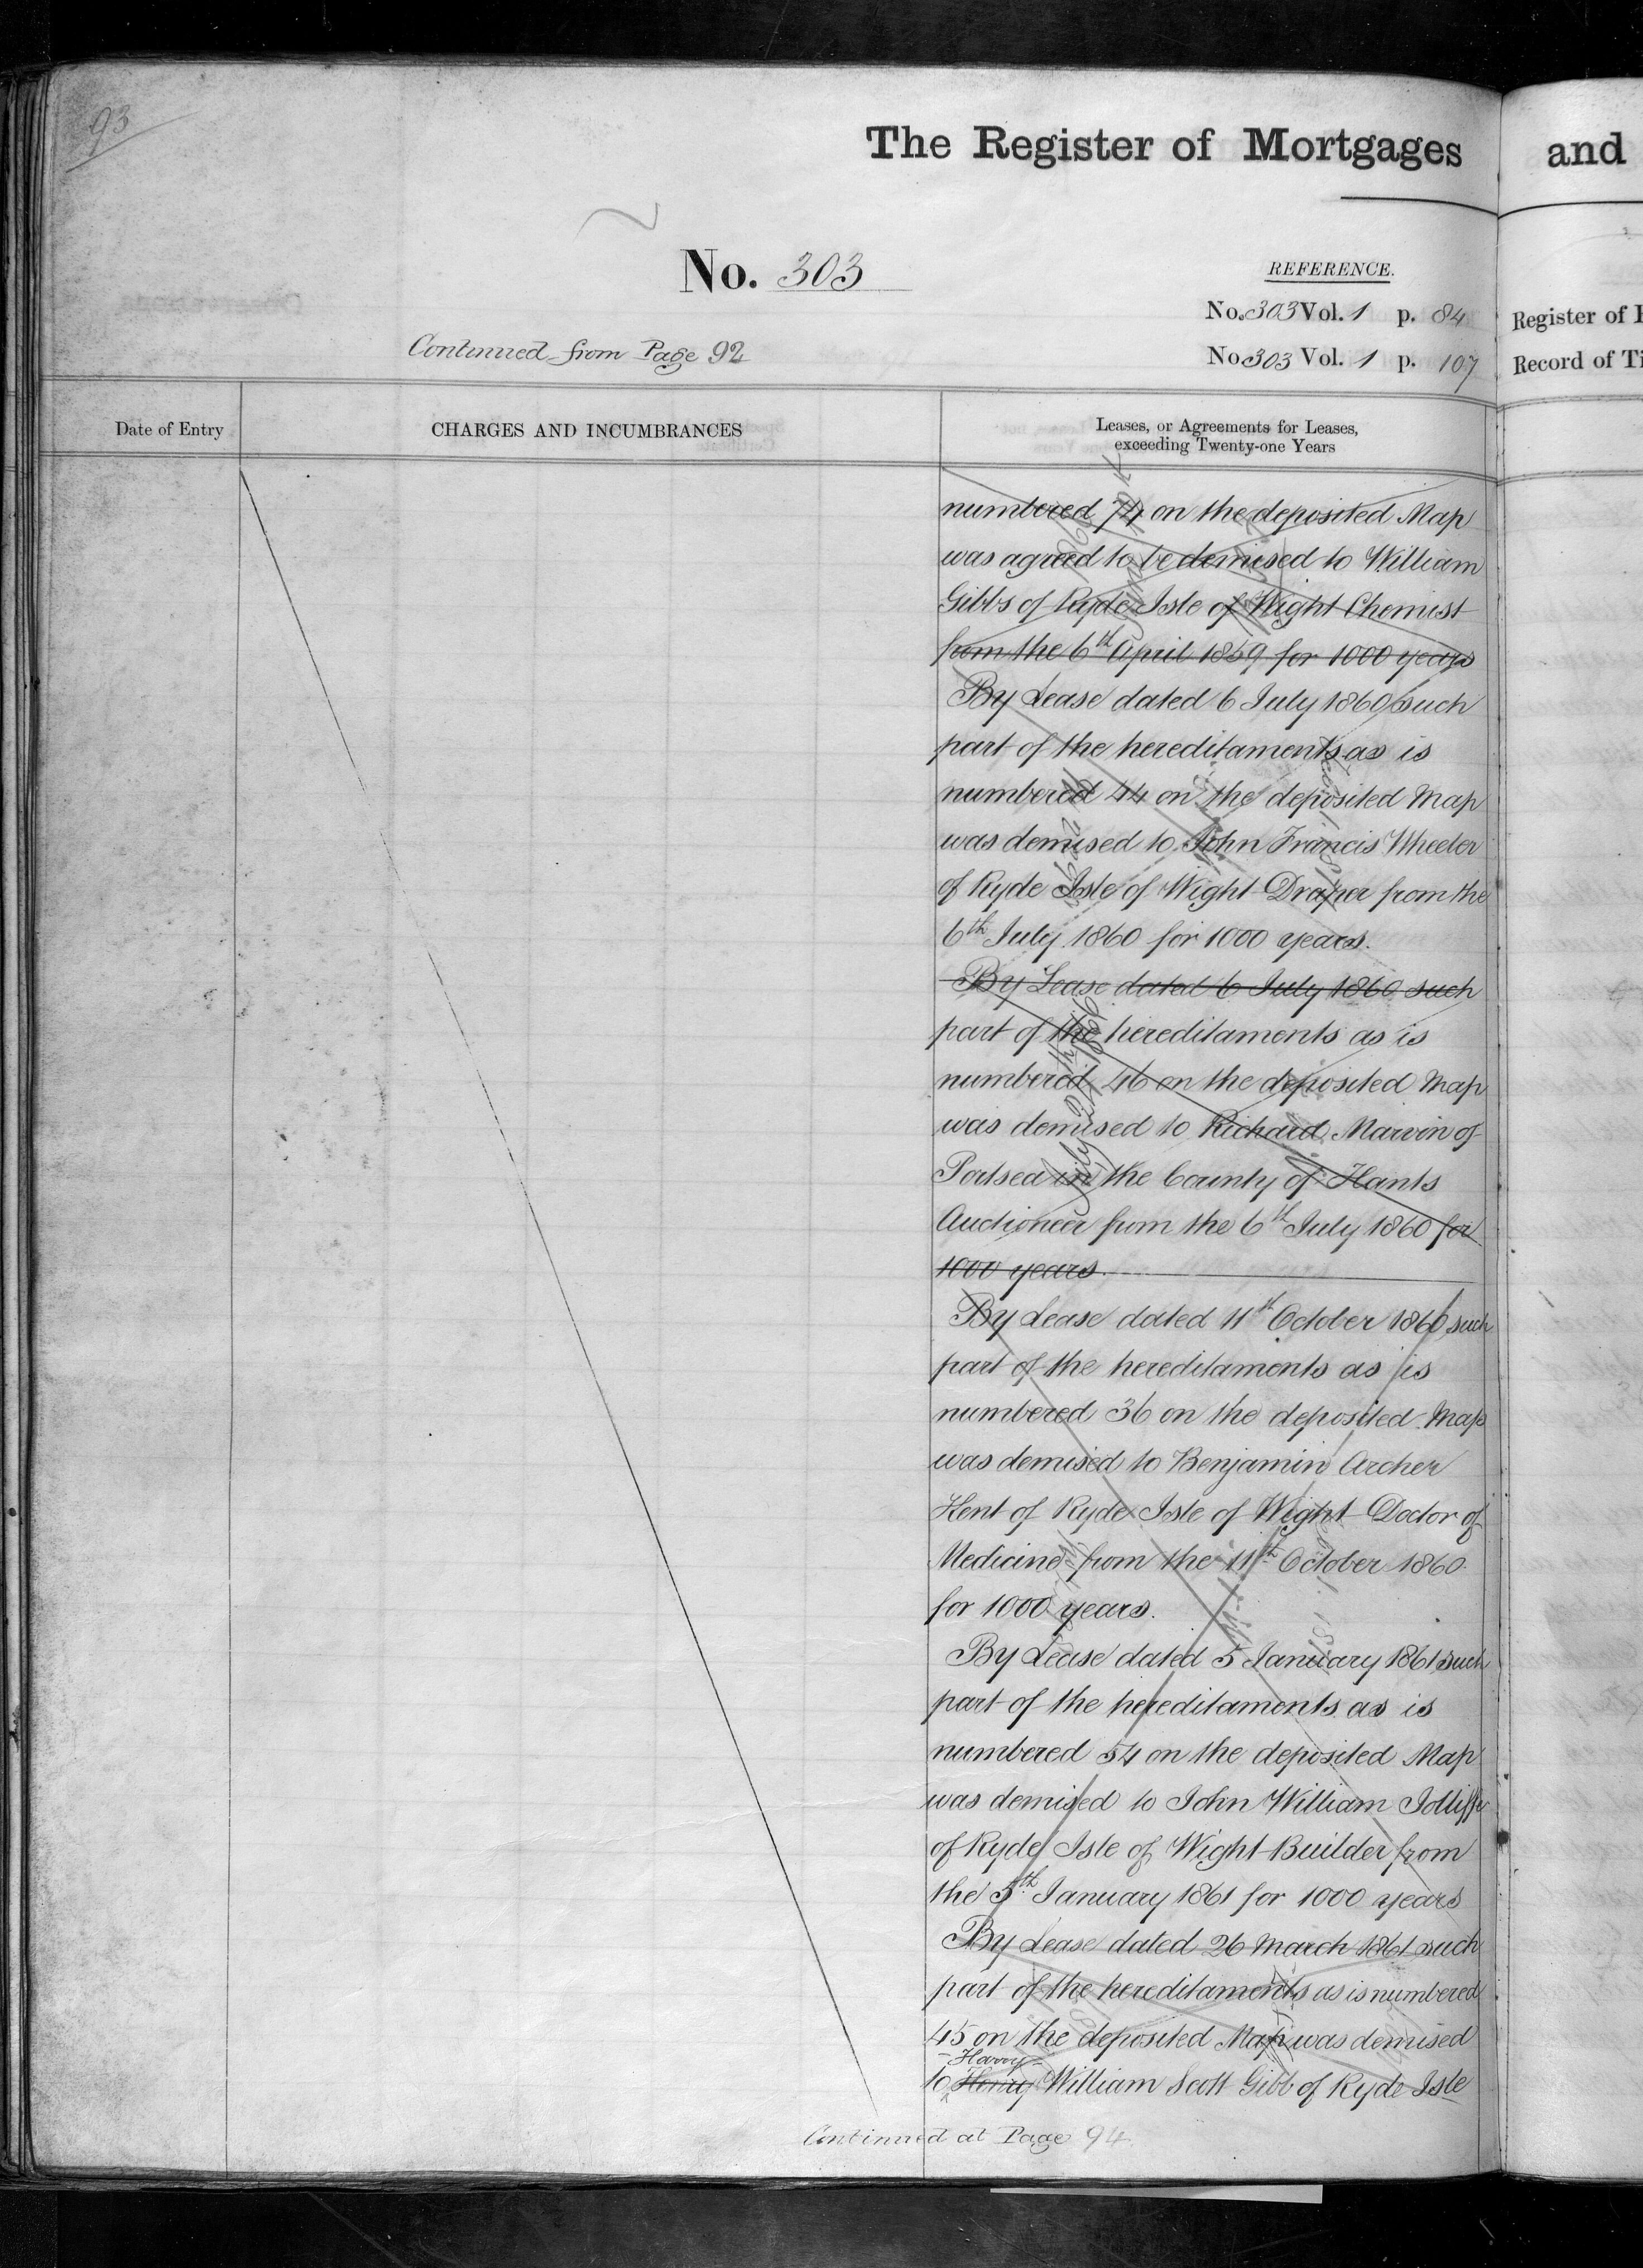 93
The Register of Mortgages and
No. 303
REFERENCE.
No. 303 Vol. 1 p. 84 Register of
Continued from Page 92
No 303 Vol. 1 p. 107 Record of Ti
Date of Entry
CHARGES AND INCUMBRANCES
Leases, or Agreements for Leases,
exceeding Twenty-one Years
numbered 74 on the deposited Map
was agreed to be demised to William
Gibbs of Ryde Isle of Wight Chemist
from the 6th April 1859 for 1000 years
By Lease dated 6 July 1860 such
part of the hereditaments as is
numbered 44 on the deposited Map
was demised to John Francis Wheeler
of Ryde Isle of Wight Draper from the
6th July 1860 for 1000 years.
By Lease dated 6 July 1860 such
part of the hereditaments as is
numbered 46 on the deposited Map
was demised to Richard Marvin of
Portsea in the County of Hants
Auctioneer from the 6th July 1860 for
1000 years.
By Lease dated 11th October 1860 such
part of the hereditaments as is
numbered 36 on the deposited Map
was demised to Benjamin Archer
Kent of Ryde Isle of Wight Doctor of
Medicine from the 11th October 1860
for 1000 years.
By Lease dated 5 January 1861 such
part of the hereditaments as is
numbered 54 on the deposited Map
was demised to John William Jolliffe
of Ryde Isle of Wight Builder from
the 5th January 1861 for 1000 years
By Lease dated 26 March 1861 such
part of the hereditaments as is numbered
45 on the deposited Map was demised
Harry
to Henry William Scott Gibb of Ryde Isle
Continued at Page 94